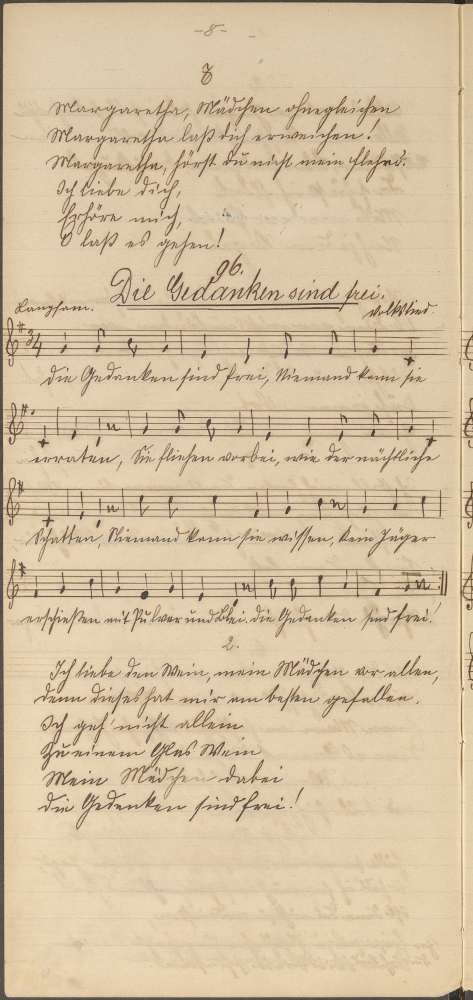 -8-
8
Margaretha, Mädchen ohnegleichen
Margaretha laß dich erweichen.
Margaretha, hörst du nicht mein flehen.
Ich liebe dich,
Erhöre mich,
O laß es gehen!
96.
Die Gedanken sind frei.
Langsam.
Volkslied.
3/4
die Gedanken sind frei, Niemand kann sie
erraten, Sie fliehen vorbei, wie der nächtliche
Schatten, Niemand kann sie wissen, kein Jäger
erschießen mit Pulver und Blei. die Gedanken sind frei!
2.
Ich liebe den Wein, mein Mädchen vor allen,
denn dieses hat mir am besten gefallen.
Ich geh' nicht allein
Zu einem Glas Wein
Mein Mädchen dabei
die Gedanken sind frei!